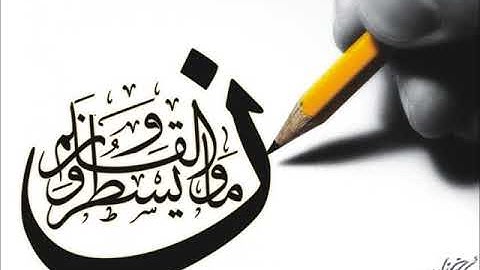 ن والقلم وما يسطرون